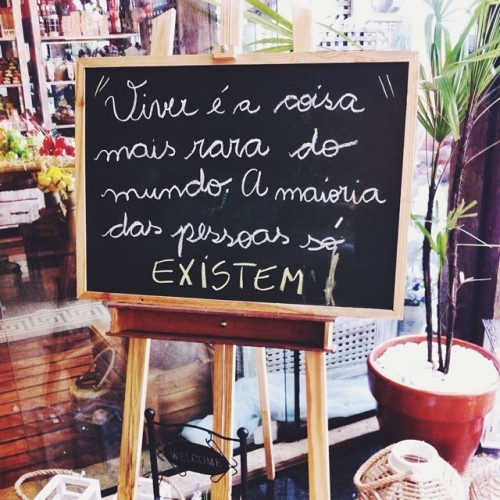 "Viver é a coisa"
mais rara do
mundo. A maioria
das pessoas só
EXISTEM!
WELCOME